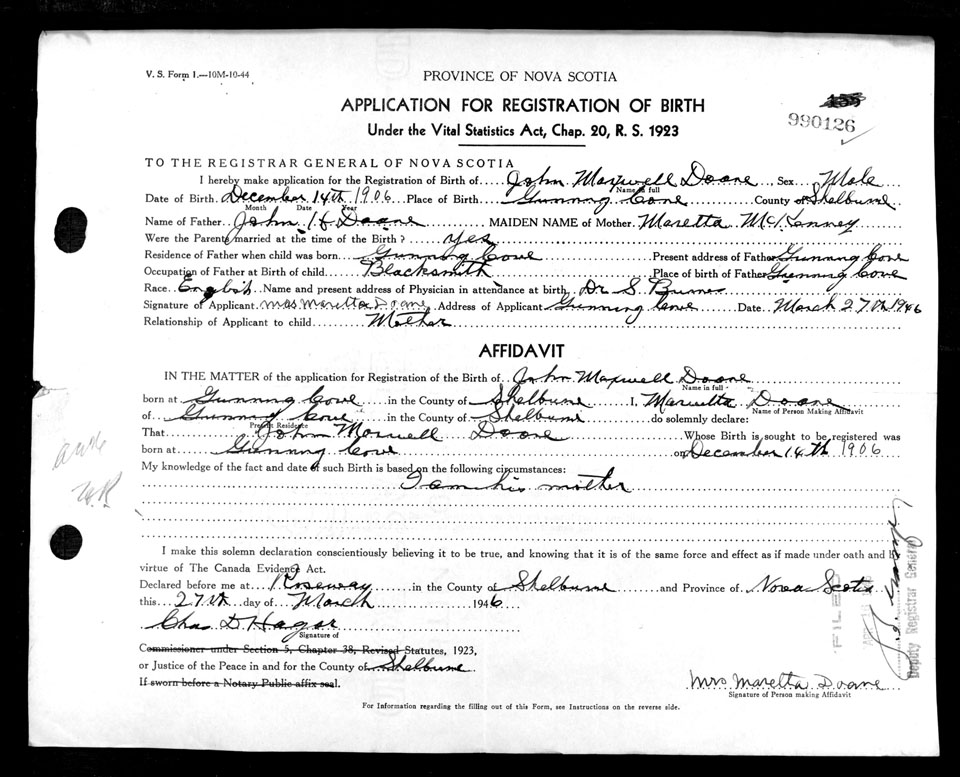 V. S. Form 1.—10M-10-44
PROVINCE OF NOVA SCOTIA
APPLICATION FOR REGISTRATION OF BIRTH
Under the Vital Statistics Act, Chap. 20, R. S. 1923
990126
TO THE REGISTRAR GENERAL OF NOVA SCOTIA
I hereby make application for the Registration of Birth of John Maxwell Doane Sex Male
Name in full
Date of Birth December 14th 1906 Place of Birth Gunning Cove County of Shelburne
Month Date Year
Name of Father John H Doane MAIDEN NAME of Mother Maretta McKenney
Were the Parents married at the time of the Birth? yes
Residence of Father when child was born Gunning Cove Present address of Father Gunning Cove
Occupation of Father at Birth of child Blacksmith Place of birth of Father Gunning Cove
Race English Name and present address of Physician in attendance at birth Dr S. Burns
Signature of Applicant Mrs Maretta Doane Address of Applicant Gunning Cove Date March 27th 1946
Relationship of Applicant to child Mother
AFFIDAVIT
IN THE MATTER of the application for Registration of the Birth of John Maxwell Doane
Name in full
born at Gunning Cove in the County of Shelburne I, Maretta Doane
Name of Person Making Affidavit
of Gunning Cove in the County of Shelburne do solemnly declare:
Present Residence
That John Maxwell Doane Whose Birth is sought to be registered was
born at Gunning Cove on December 14th 1906
My knowledge of the fact and date of such Birth is based on the following circumstances:
I am his mother
I make this solemn declaration conscientiously believing it to be true, and knowing that it is of the same force and effect as if made under oath and by
virtue of The Canada Evidence Act.
Declared before me at Roseway in the County of Shelburne and Province of Nova Scotia
this 27th day of March 1946
Chas D Hagar
Signature of
Commissioner under Section 5, Chapter 38, Revised Statutes, 1923,
or Justice of the Peace in and for the County of Shelburne
If sworn before a Notary Public affix seal.
Mrs Maretta Doane
Signature of Person making Affidavit
For Information regarding the filling out of this Form, see Instructions on the reverse side.
FILED
Deputy Registrar General